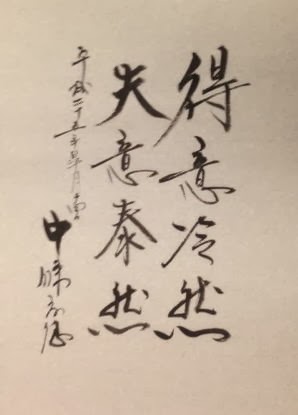 得意冷然
失意泰然
平成二十五年皐月吉日
中